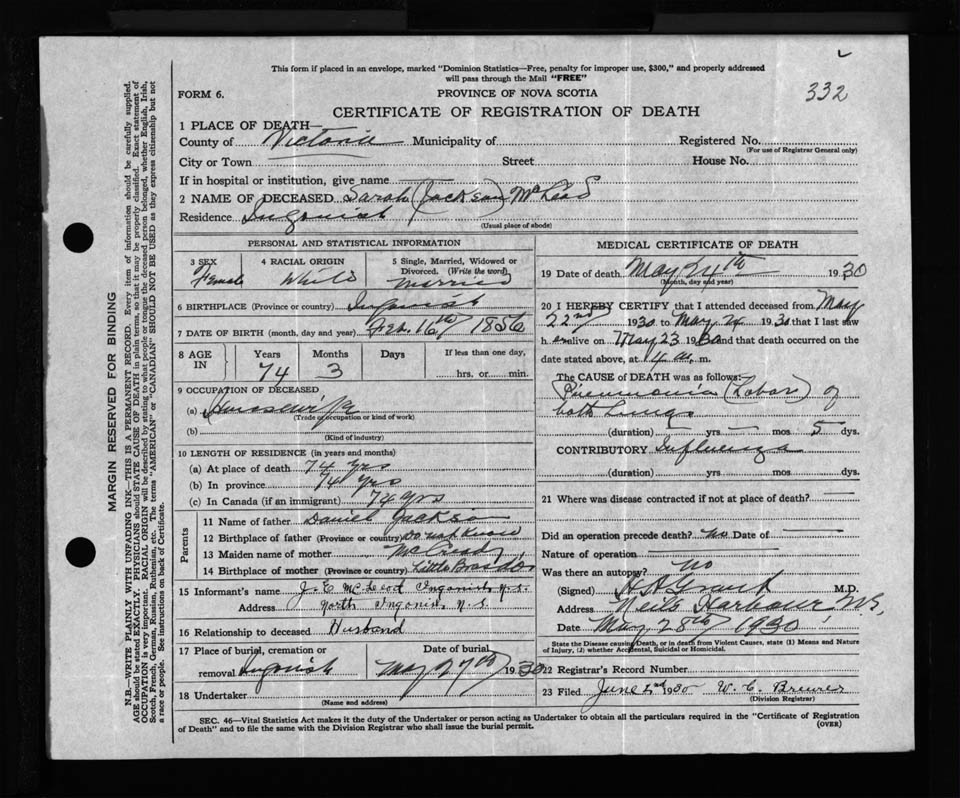 This form if placed in an envelope, marked "Dominion Statistics—Free, penalty for improper use, $300," and properly addressed
will pass through the Mail "FREE"
FORM 6.
PROVINCE OF NOVA SCOTIA
332
CERTIFICATE OF REGISTRATION OF DEATH
1 PLACE OF DEATH—
County of Victoria Municipality of Registered No.
(For use of Registrar General only)
City or Town Street House No.
If in hospital or institution, give name
2 NAME OF DECEASED Sarah (Jackson) McLeod
Residence Ingonish
(Usual place of abode)
PERSONAL AND STATISTICAL INFORMATION
3 SEX 4 RACIAL ORIGIN 5 Single, Married, Widowed or
Divorced. (Write the word)
Female White Married
6 BIRTHPLACE (Province or country) Ingonish
7 DATE OF BIRTH (month, day and year) Feb. 16th 1856
8 AGE IN Years Months Days If less than one day,
74 3 hrs. or min.
9 OCCUPATION OF DECEASED
(a) Housewife
(Trade or occupation or kind of work)
(b)
(Kind of industry)
10 LENGTH OF RESIDENCE (in years and months)
(a) At place of death 74 yrs
(b) In province 74 yrs
(c) In Canada (if an immigrant) 74 yrs
Parents
11 Name of father Daniel Jackson
12 Birthplace of father (Province or country) Do not know
13 Maiden name of mother McCready
14 Birthplace of mother (Province or country) Little Bras d'or
15 Informant's name J. E. McLeod Ingonish, N.S.
Address North Ingonish, N.S.
16 Relationship to deceased Husband
17 Place of burial, cremation or Date of burial
removal Ingonish May 27th 1930
18 Undertaker
(Name and address)
MEDICAL CERTIFICATE OF DEATH
19 Date of death May 24th 1930
(Month, day and year)
20 I HEREBY CERTIFY that I attended deceased from May
22nd 1930 to May 24 1930 that I last saw
h er alive on May 23 1930 and that death occurred on the
date stated above, at 4 a. m.
The CAUSE OF DEATH was as follows:
Pneumonia (Lobar) of
both Lungs
(duration) — yrs — mos 5 dys.
CONTRIBUTORY Influenza
(duration) yrs. mos. dys.
21 Where was disease contracted if not at place of death? —
Did an operation precede death? no Date of —
Nature of operation —
Was there an autopsy? no
(Signed) M.D.
Address Neils Harbour N.S.
Date May 28th 1930
State the Disease causing Death, or in death from Violent Causes, state (1) Means and Nature
of Injury, (2) whether Accidental, Suicidal or Homicidal.
22 Registrar's Record Number
23 Filed June 2nd 1930 W. C. Brewer
(Division Registrar)
SEC. 46—Vital Statistics Act makes it the duty of the Undertaker or person acting as Undertaker to obtain all the particulars required in the "Certificate of Registration
of Death" and to file the same with the Division Registrar who shall issue the burial permit.
(OVER)
MARGIN RESERVED FOR BINDING
N.B.—WRITE PLAINLY WITH UNFADING INK—THIS IS A PERMANENT RECORD. Every item of information should be carefully supplied.
AGE should be stated EXACTLY. PHYSICIANS should STATE CAUSE OF DEATH in plain terms, so that it may be properly classified. Exact statement of
OCCUPATION is very important. RACIAL ORIGIN will be described by stating to what people or tongue the deceased person belonged, whether English, Irish,
Scotch, French, German, Russian, Ruthenian, etc. The terms "AMERICAN" or "CANADIAN" SHOULD NOT BE USED as they express citizenship but not
a race or people. See instructions on back of Certificate.